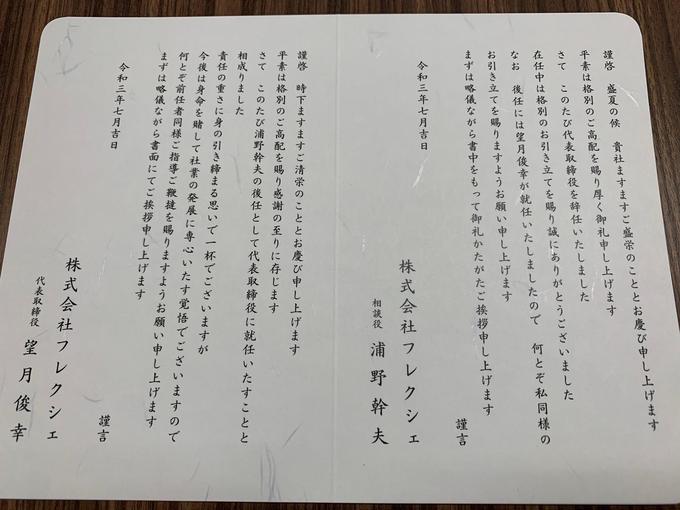 謹啓　盛夏の候　貴社ますますご盛栄のこととお慶び申し上げます
平素は格別のご高配を賜り厚く御礼申し上げます
さて　このたび代表取締役を辞任いたしました
在任中は格別のお引き立てを賜り誠にありがとうございました
なお　後任には望月俊幸が就任いたしましたので　何とぞ私同様の
お引き立てを賜りますようお願い申し上げます
まずは略儀ながら書中をもって御礼かたがたご挨拶申し上げます
謹言
令和三年七月吉日
株式会社フレクシェ
相談役　浦野幹夫
謹啓　時下ますますご清栄のこととお慶び申し上げます
平素は格別のご高配を賜り感謝の至りに存じます
さて　このたび浦野幹夫の後任として代表取締役に就任いたすことと
相成りました
責任の重さに身の引き締まる思いで一杯でございますが
今後は身命を賭して社業の発展に専心いたす覚悟でございますので
何とぞ前任者同様ご指導ご鞭撻を賜りますようお願い申し上げます
まずは略儀ながら書面にてご挨拶申し上げます
謹言
令和三年七月吉日
株式会社フレクシェ
代表取締役　望月俊幸